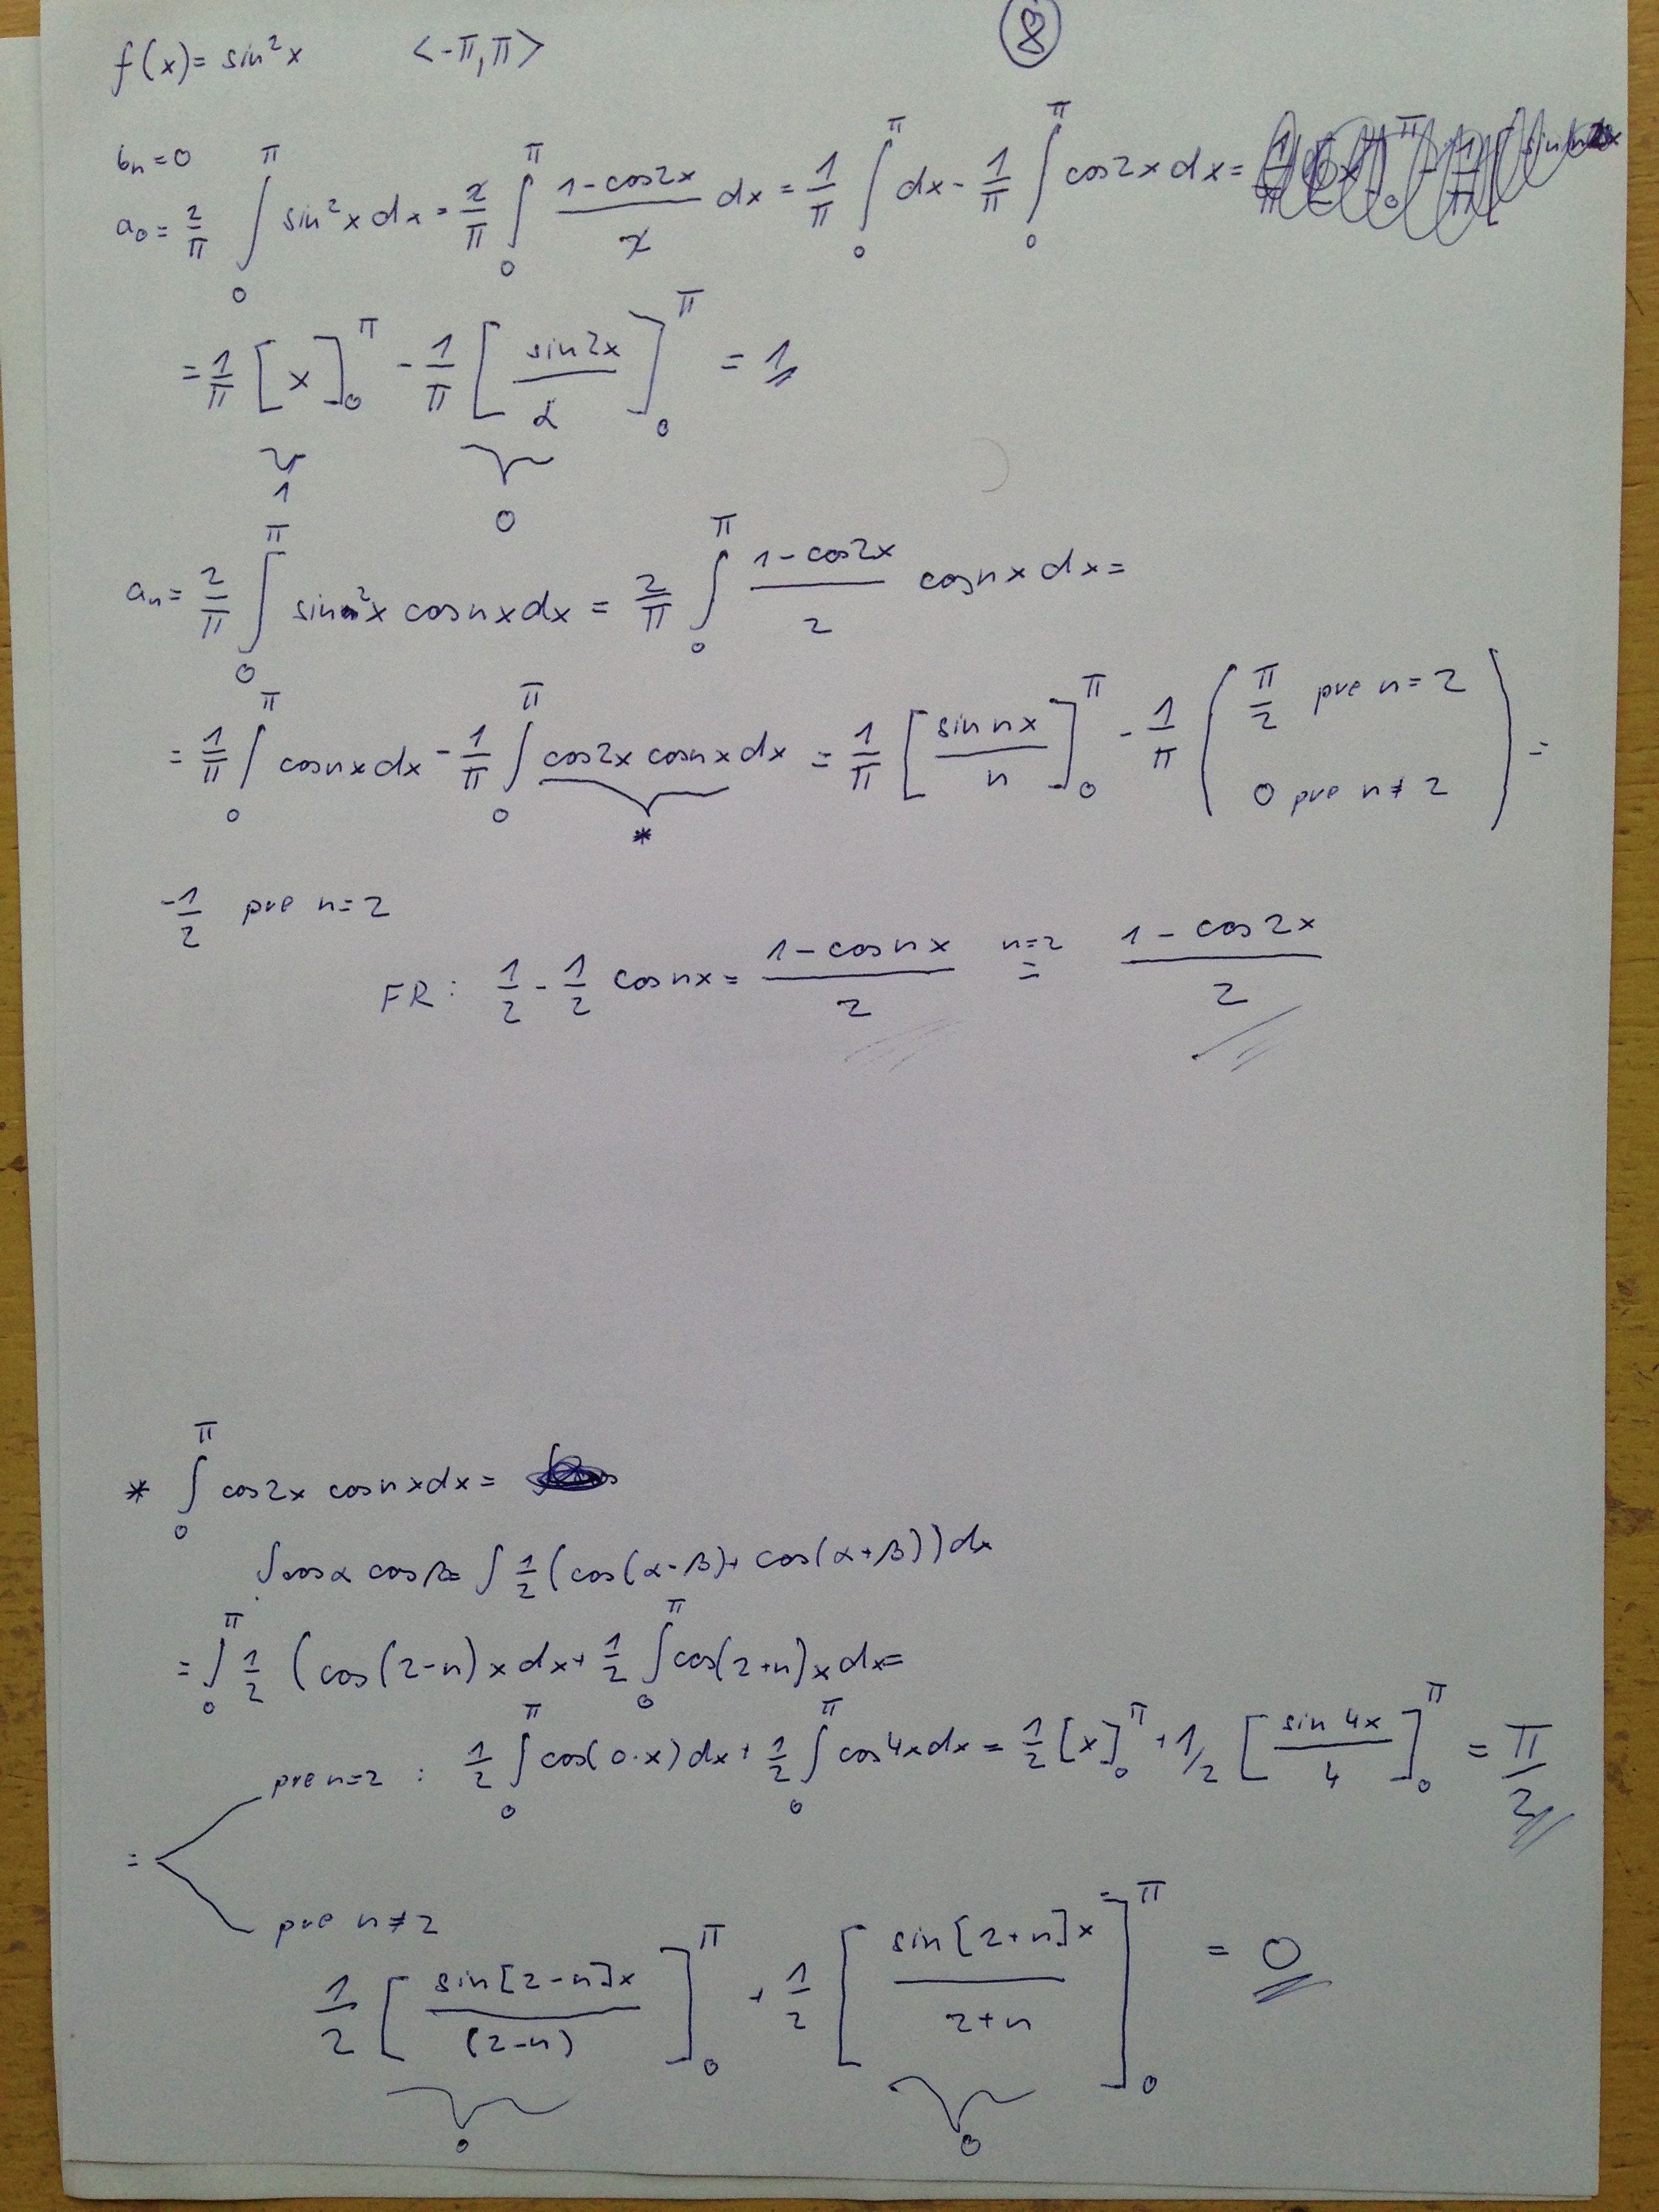 f(x) = sin²x <-π, π> 8
bₙ = 0
a₀ = 2/π ∫₀^π sin²x dx = 2/π ∫₀^π (1-cos2x)/2 dx = 1/π ∫₀^π dx - 1/π ∫₀^π cos2x dx =
= 1/π [x]₀^π - 1/π [sin2x/2]₀^π = 1
1 0
aₙ = 2/π ∫₀^π sin²x cosnx dx = 2/π ∫₀^π (1-cos2x)/2 cosnx dx =
= 1/π ∫₀^π cosnx dx - 1/π ∫₀^π cos2x cosnx dx = 1/π [sin nx/n]₀^π - 1/π (π/2 pre n=2 0 pre n≠2) =
*
-1/2 pre n=2
FR: 1/2 - 1/2 cosnx = (1-cosnx)/2 n=2 = (1-cos2x)/2
* ∫₀^π cos2x cosnx dx =
∫cosα cosβ = ∫ 1/2 (cos(α-β)+ cos(α+β)) dx
= ∫₀^π 1/2 (cos(2-n)x dx + 1/2 ∫₀^π cos(2+n)x dx =
= pre n=2 : 1/2 ∫₀^π cos(0·x) dx + 1/2 ∫₀^π cos4x dx = 1/2 [x]₀^π + 1/2 [sin4x/4]₀^π = π/2
pre n≠2
1/2 [sin[2-n]x/(2-n)]₀^π + 1/2 [sin[2+n]x/2+n]₀^π = 0
0 0